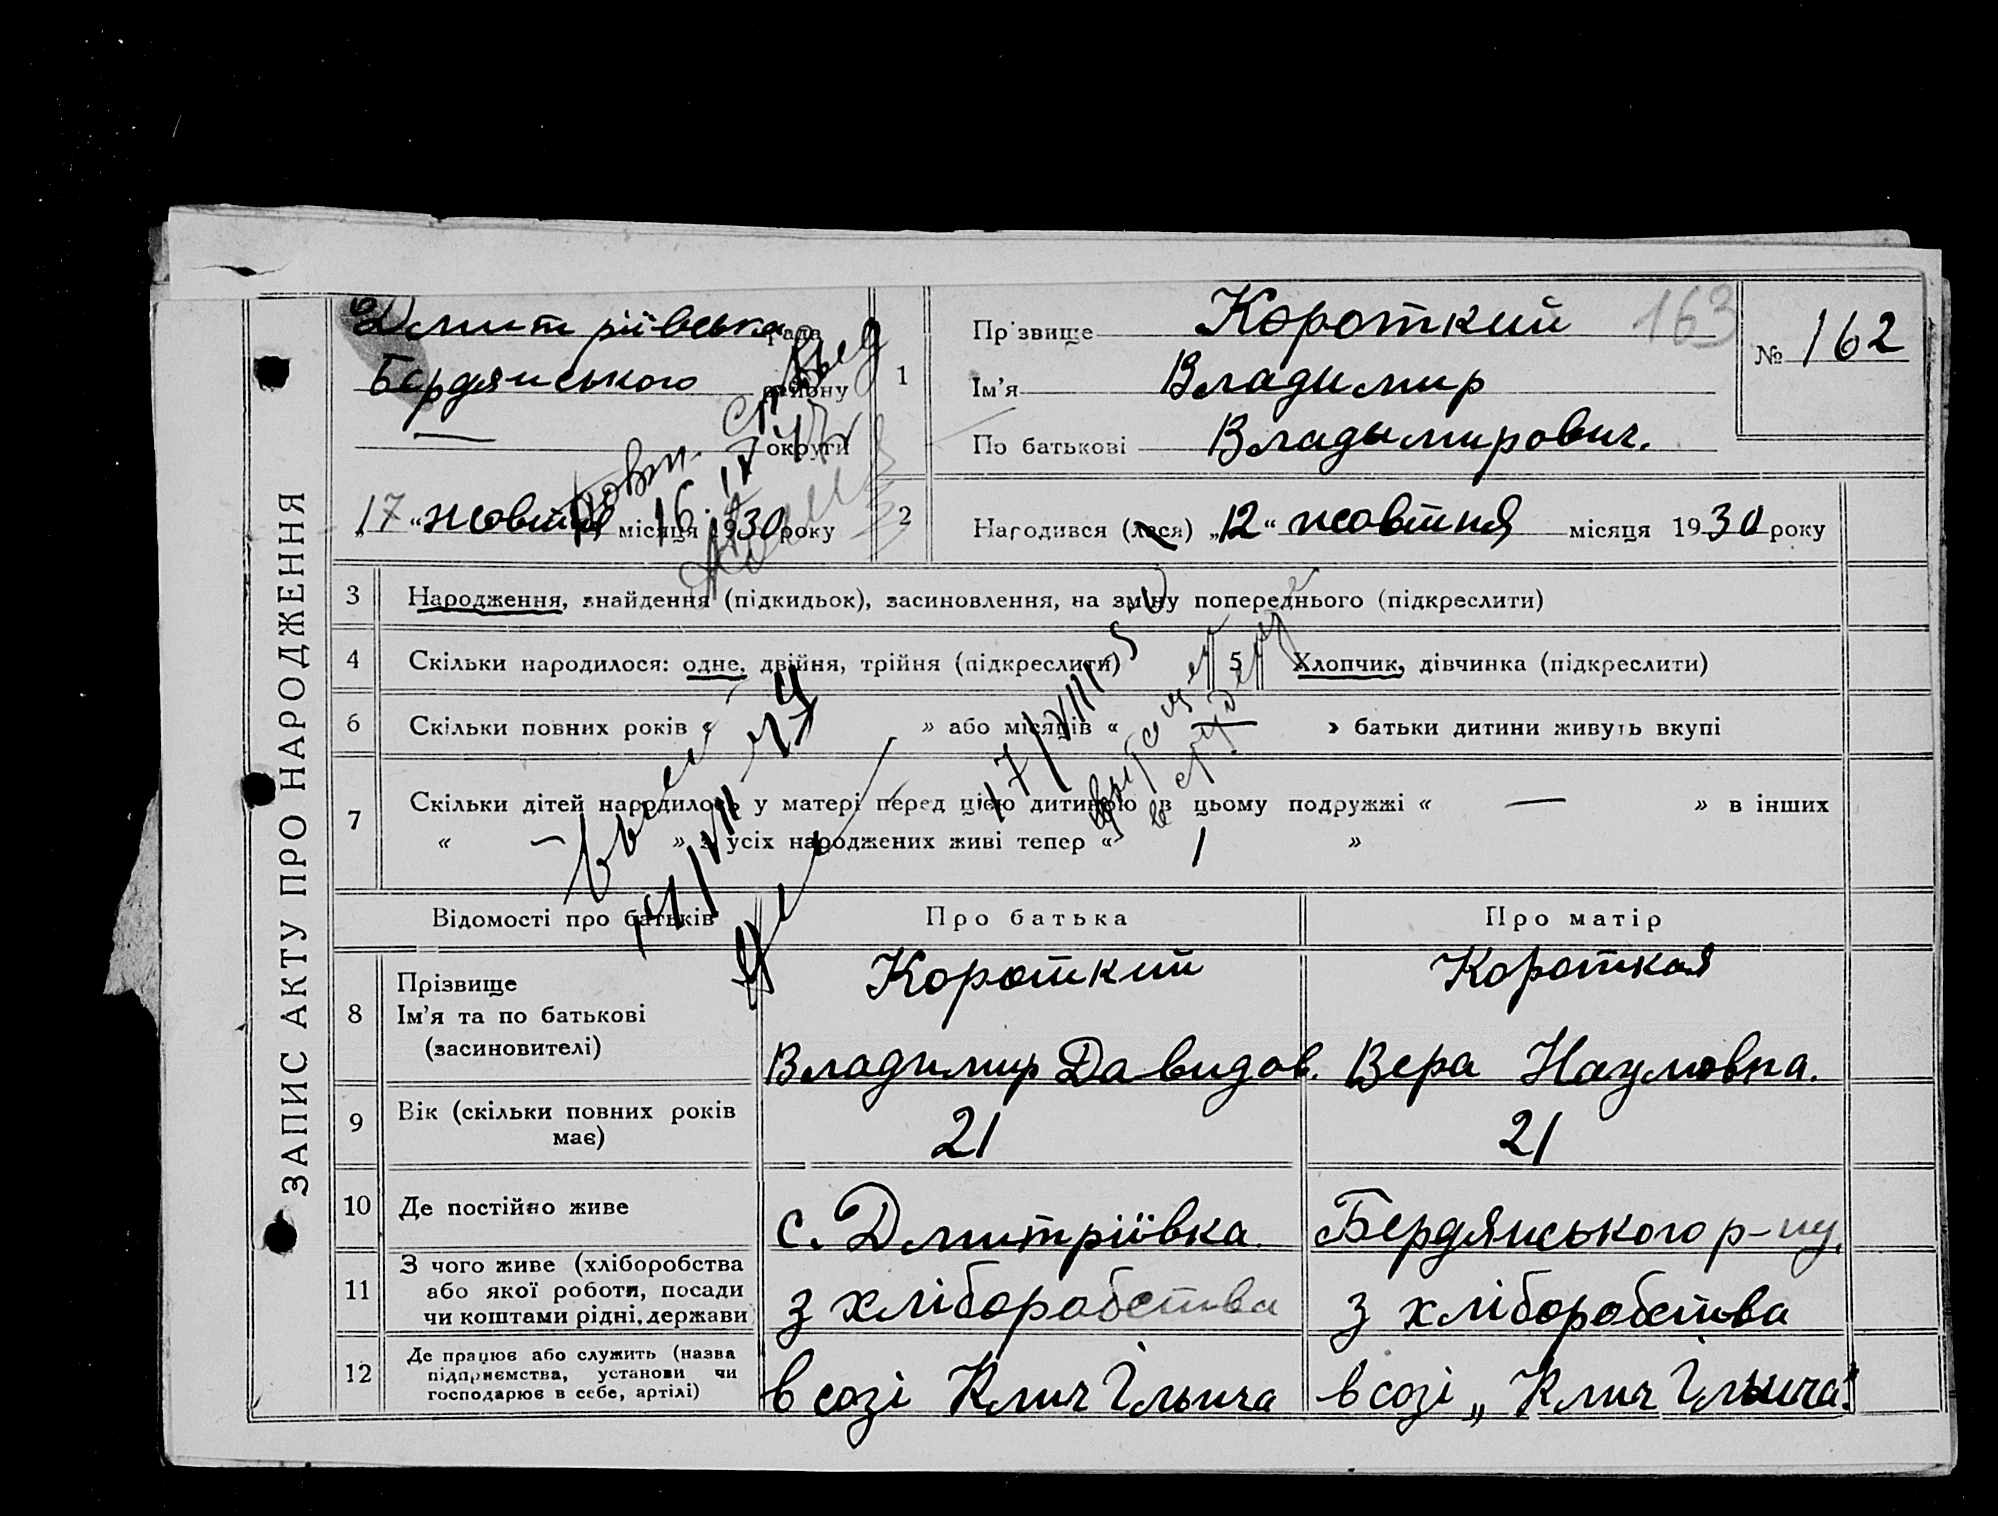 ЗАПИС АКТУ ПРО НАРОДЖЕННЯ
Дмитріївська рада
Бердянського району
— округи
„17“ жовтня місяця 1930 року
1
Прізвище Короткий
163
№ 162
Ім'я Владимир
По батькові Владымирович.
2
Народився (лася) „12“ жовтня місяця 1930 року
Повт. свид
16. IX 47
3 Народження, знайдення (підкидьок), засиновлення, на зміну попереднього (підкреслити)
4 Скільки народилося: одне, двійня, трійня (підкреслити)
5 Хлопчик, дівчинка (підкреслити)
6 Скільки повних років « » або місяців « — » батьки дитини живуть вкупі
7 Скільки дітей народилось у матері перед цією дитиною в цьому подружжі « — » в інших
« — » з усіх народжених живі тепер « 1 »
17/VIII 50
Відомості про батьків
Про батька
Про матір
8 Прізвище
Ім'я та по батькові
(засиновителі)
Короткий
Владимир Давидов.
Короткая
Вера Наумовна.
9 Вік (скільки повних років має)
21
21
10 Де постійно живе
с. Дмитріївка
Бердянського р-ну.
11 З чого живе (хліборобства
або якої роботи, посади
чи коштами рідні, держави
з хліборобства
з хліборобства
12 Де працює або служить (назва
підприємства, установи чи
господарює в себе, артілі)
в созі Клич Ільича
в созі „Клич Ільича"